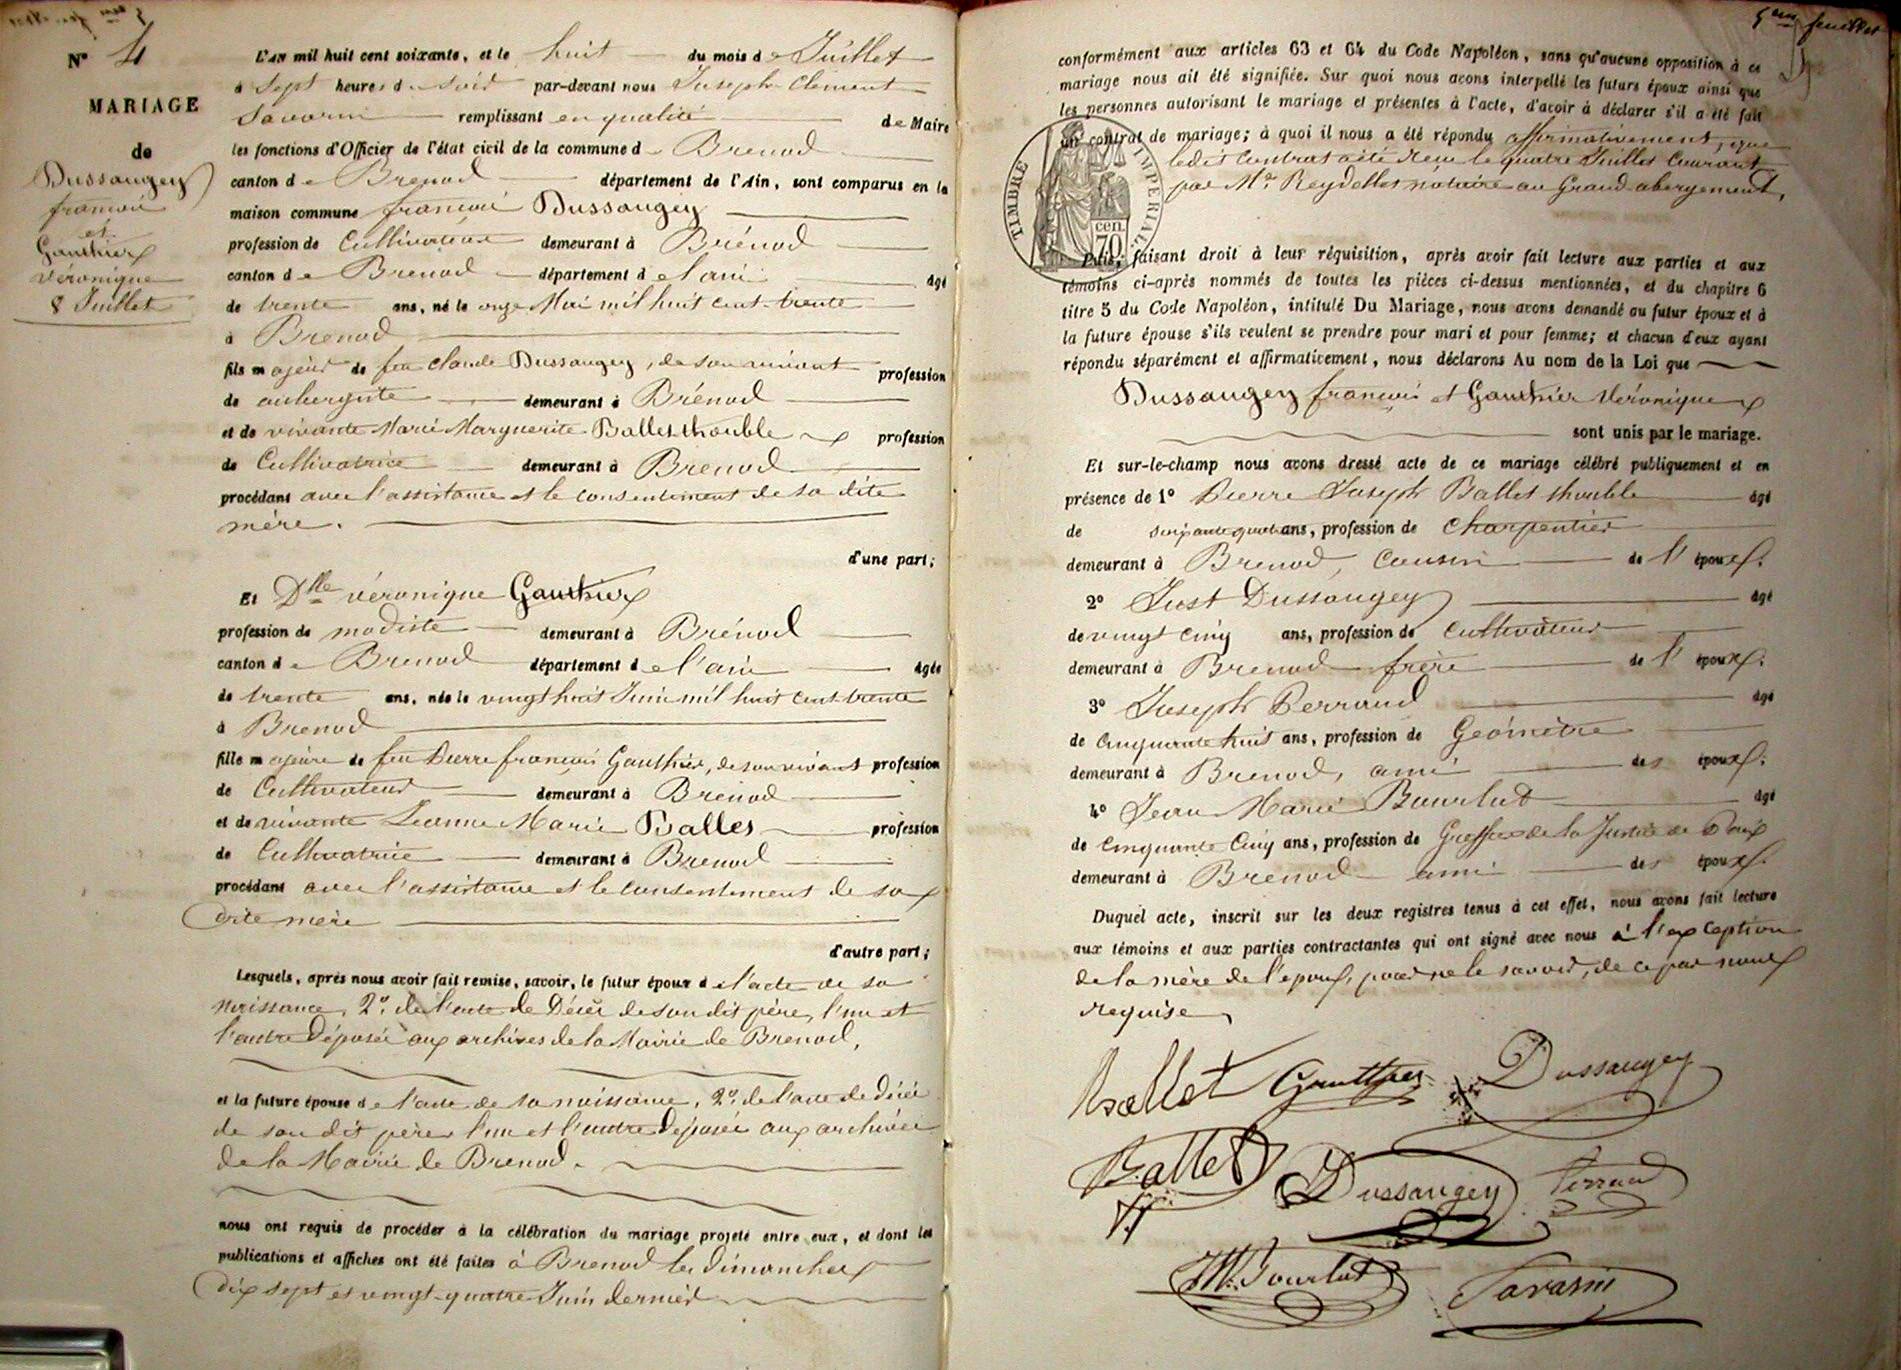 N° 4
MARIAGE
de
Dussaugey
françois
et
Gauthier
Véronique
8 Juillet
L'AN mil huit cent soixante, et le huit du mois de Juillet
à Sept heures du Soir par-devant nous Joseph Clément
Savarin remplissant en qualité de Maire
les fonctions d'Officier de l'état civil de la commune de Brenod
canton de Brenod département de l'Ain, sont comparus en la
maison commune françois Dussaugey
profession de Cultivateur demeurant à Brénod
canton de Brenod département de l'ain âgé
de trente ans, né le onze Mai mil huit cent trente
à Brenod
fils majeur de feu Claude Dussaugey, de son vivant profession
de aubergiste demeurant à Brénod
et de vivante Marie Marguerite Ballet thouble profession
de Cultivatrice demeurant à Brenod
procédant avec l'assistance et le consentement de sa dite
mère.
d'une part;
Et Dlle véronique Gauthier
profession de modiste demeurant à Brénod
canton de Brenod département de l'ain âgée
de trente ans, née le vingt huit Juin mil huit cent trente
à Brenod
fille majeure de feu Pierre françois Gauthier, de son vivant profession
de Cultivateur demeurant à Brenod
et de vivante Jeanne Marie Ballet profession
de Cultivatrice demeurant à Brenod
procédant avec l'assistance et le consentement de sa
dite mère
d'autre part;
Lesquels, après nous avoir fait remise, savoir, le futur époux de l'acte de sa
naissance, 2° de l'acte de Décès de son dit père, l'un et
l'autre Déposés aux archives de la Mairie de Brenod,
et la future épouse de l'acte de sa naissance, 2° de l'acte de décès
de son dit père l'un et l'autre déposés aux archives
de la Mairie de Brenod.
nous ont requis de procéder à la célébration du mariage projeté entre eux, et dont les
publications et affiches ont été faites à Brenod les dimanches
dix sept et vingt-quatre Juin dernier
5eme feuillet
conformément aux articles 63 et 64 du Code Napoléon, sans qu'aucune opposition à ce
mariage nous ait été signifiée. Sur quoi nous avons interpellé les futurs époux ainsi que
les personnes autorisant le mariage et présentes à l'acte, d'avoir à déclarer s'il a été fait
un contrat de mariage; à quoi il nous a été répondu affirmativement, que
ledit contrat a été reçu le quatre Juillet courant
par Me Reydellet notaire au Grand abergement,
TIMBRE IMPERIAL
70 cen.
Puis, faisant droit à leur réquisition, après avoir fait lecture aux parties et aux
témoins ci-après nommés de toutes les pièces ci-dessus mentionnées, et du chapitre 6
titre 5 du Code Napoléon, intitulé Du Mariage, nous avons demandé au futur époux et à
la future épouse s'ils veulent se prendre pour mari et pour femme; et chacun d'eux ayant
répondu séparément et affirmativement, nous déclarons Au nom de la Loi que
Dussaugey françois et Gauthier Véronique
sont unis par le mariage.
Et sur-le-champ nous avons dressé acte de ce mariage célébré publiquement et en
présence de 1° Pierre Joseph Ballet thouble âgé
de ans, profession de Charpentier
demeurant à Brenod, cousin de l'époux.
2° Just Dussaugey âgé
de vingt cinq ans, profession de Cultivateur
demeurant à Brenod frère de l'époux.
3° Joseph Perraud âgé
de Cinquante huit ans, profession de Géomètre
demeurant à Brenod, ami des époux.
4° Jean Marie Bourlut âgé
de Cinquante Cinq ans, profession de Greffier de la Justice de Paix
demeurant à Brenod ami des époux.
Duquel acte, inscrit sur les deux registres tenus à cet effet, nous avons fait lecture
aux témoins et aux parties contractantes qui ont signé avec nous à l'exception
de la mère de l'époux, pour ne le savoir, de ce par nous
requise
Ballet Gautthier Dussaugey
Ballet Dussaugey Perraud
JM. Bourlut Savarin